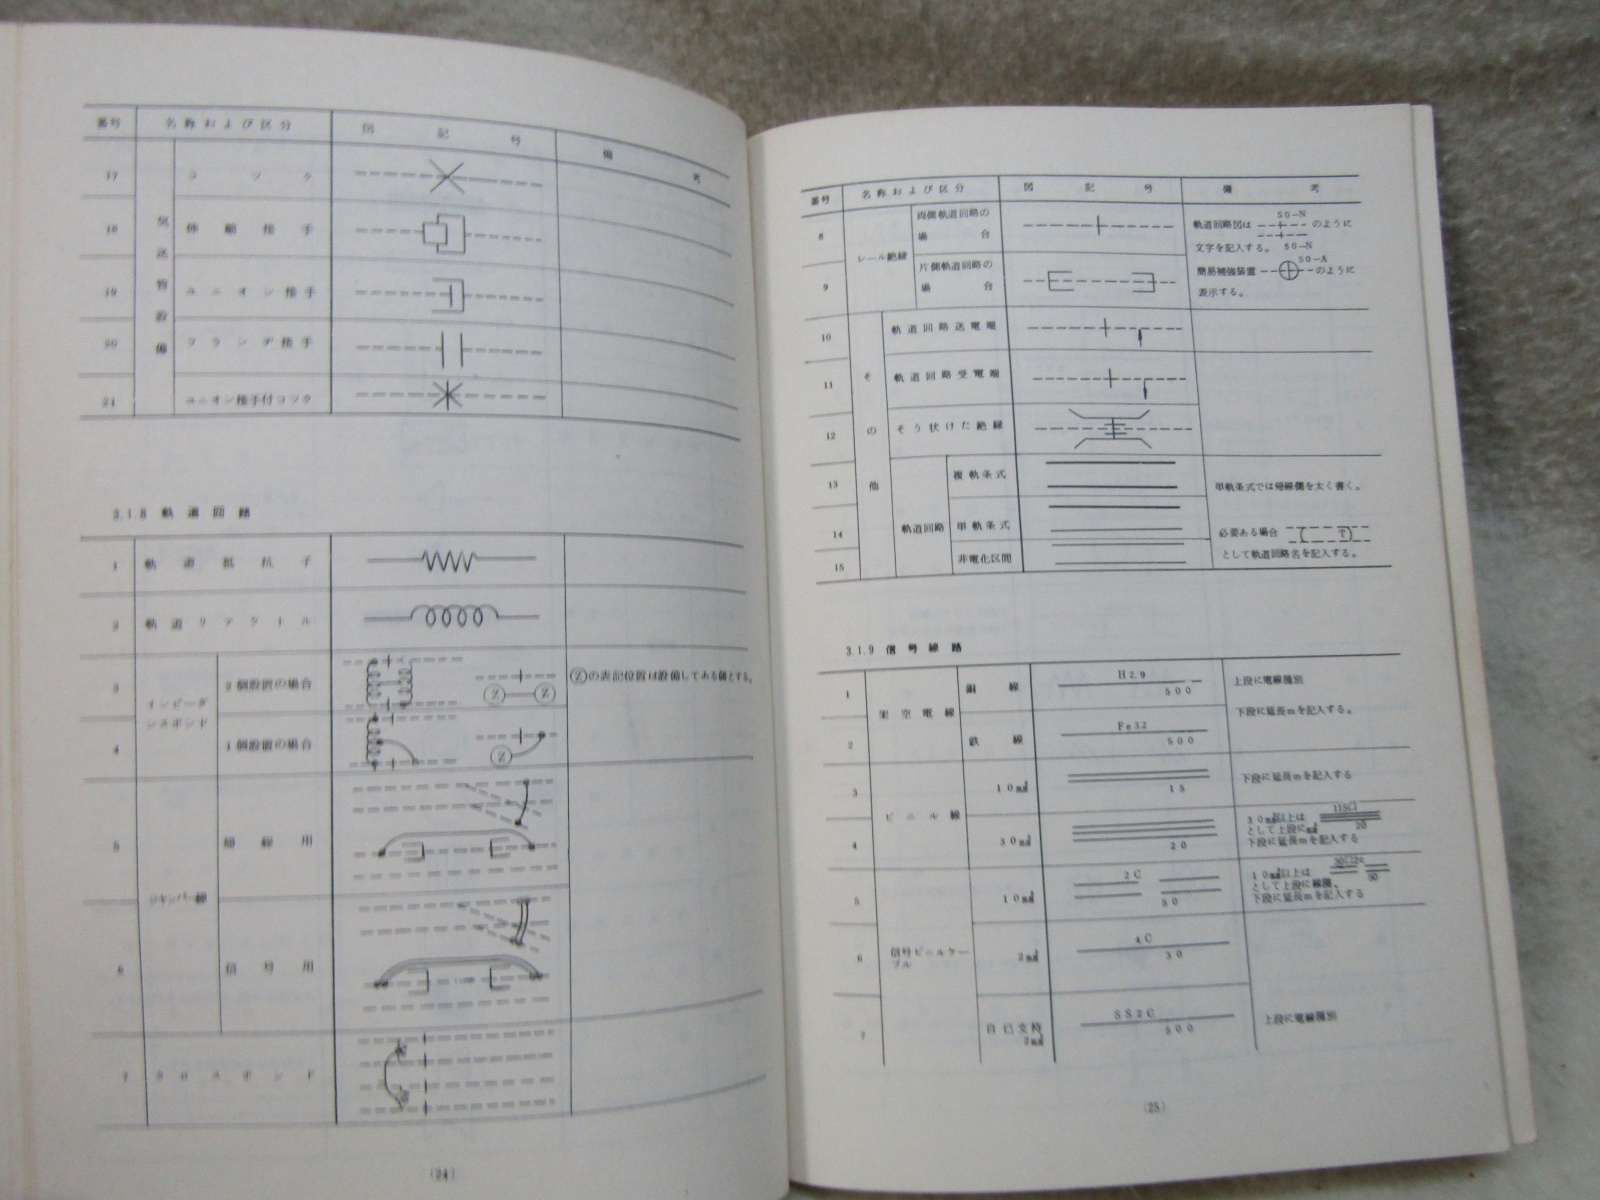 番号 名称および区分 図記号 備考
17 コック
気送管設備
18 伸縮接手
19 ユニオン接手
20 フランヂ接手
21 ユニオン接手付コック
3.1.8 軌道回路
1 軌道抵抗子
2 軌道リアクトル
インピーダンスボンド
3 2個設置の場合 Z Z Zの表記位置は設備してある側とする。
4 1個設置の場合 Z
ジャンパー線
5 帰線用
6 信号用
7 クロスボンド
(24)
番号 名称および区分 図記号 備考
レール絶縁
8 両側軌道回路の場合 軌道回路図は 50-N のように
文字を記入する。 50-N
9 片側軌道回路の場合 簡易補強装置 50-A のように
表示する。
その他
10 軌道回路送電端
11 軌道回路受電端
12 そう状けた絶縁
軌道回路
13 複軌条式 単軌条式では帰線側を太く書く。
14 単軌条式 必要ある場合 ( T)
15 非電化区間 として軌道回路名を記入する。
3.1.9 信号線路
架空電線
1 銅線 H2.9 500 上段に電線種別
下段に延長mを記入する。
2 鉄線 Fe3.2 500
ビニル線
3 10mm² 15 下段に延長mを記入する
4 30mm² 20 30mm²以上は 20
として上段にmm²
下段に延長mを記入する
信号ビニルケーブル
5 10mm² 2C 50 10mm²以上は 50
として上段に線種、
下段に延長mを記入する
6 2mm² 4C 30
7 自己支持 2mm² SS2C 500 上段に電線種別
(25)